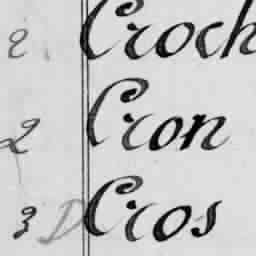 2 Croch
2 Cron
3 D Cros